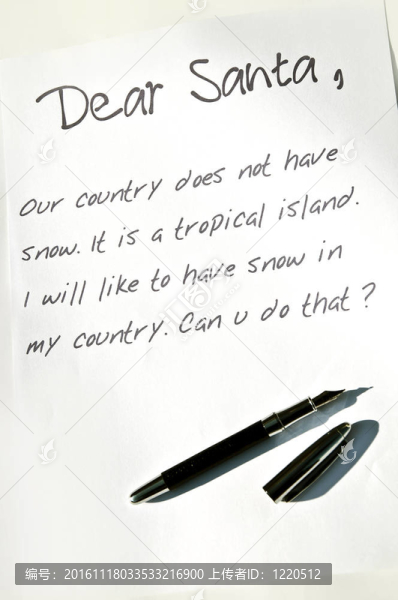 Dear Santa,
Our country does not have
snow. It is a tropical island.
I will like to have snow in
my country. Can u do that?
编号：20161118033533216900 上传者ID：1220512